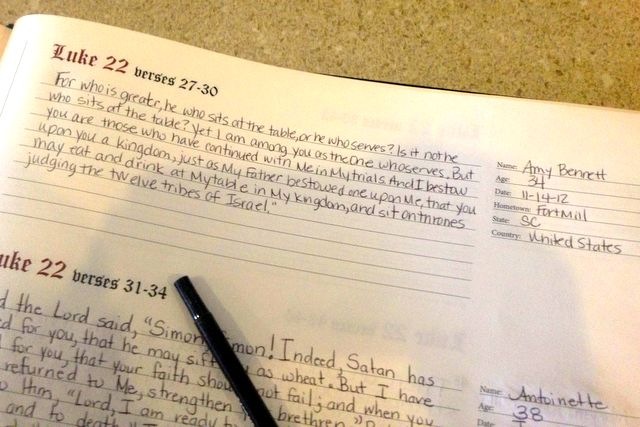 Luke 22 verses 27-30
For who is greater, he who sits at the table, or he who serves? Is it not he
who sits at the table? Yet I am among you as the One who serves. But
you are those who have continued with Me in My trials. And I bestow
upon you a kingdom, just as My Father bestowed one upon Me, that you
may eat and drink at My table in My kingdom, and sit on thrones
judging the twelve tribes of Israel."
Name: Amy Bennett
Age: 34
Date: 11-14-12
Hometown: Fort Mill
State: SC
Country: United States
uke 22 verses 31-34
d the Lord said, "Simon, Simon! Indeed, Satan has
ed for you, that he may sift as wheat. But I have
for you, that your faith should not fail; and when you
returned to Me, strengthen brethren."
Him, "Lord, I am ready
and to death."
Name: Antoinette
Age: 38
Date: